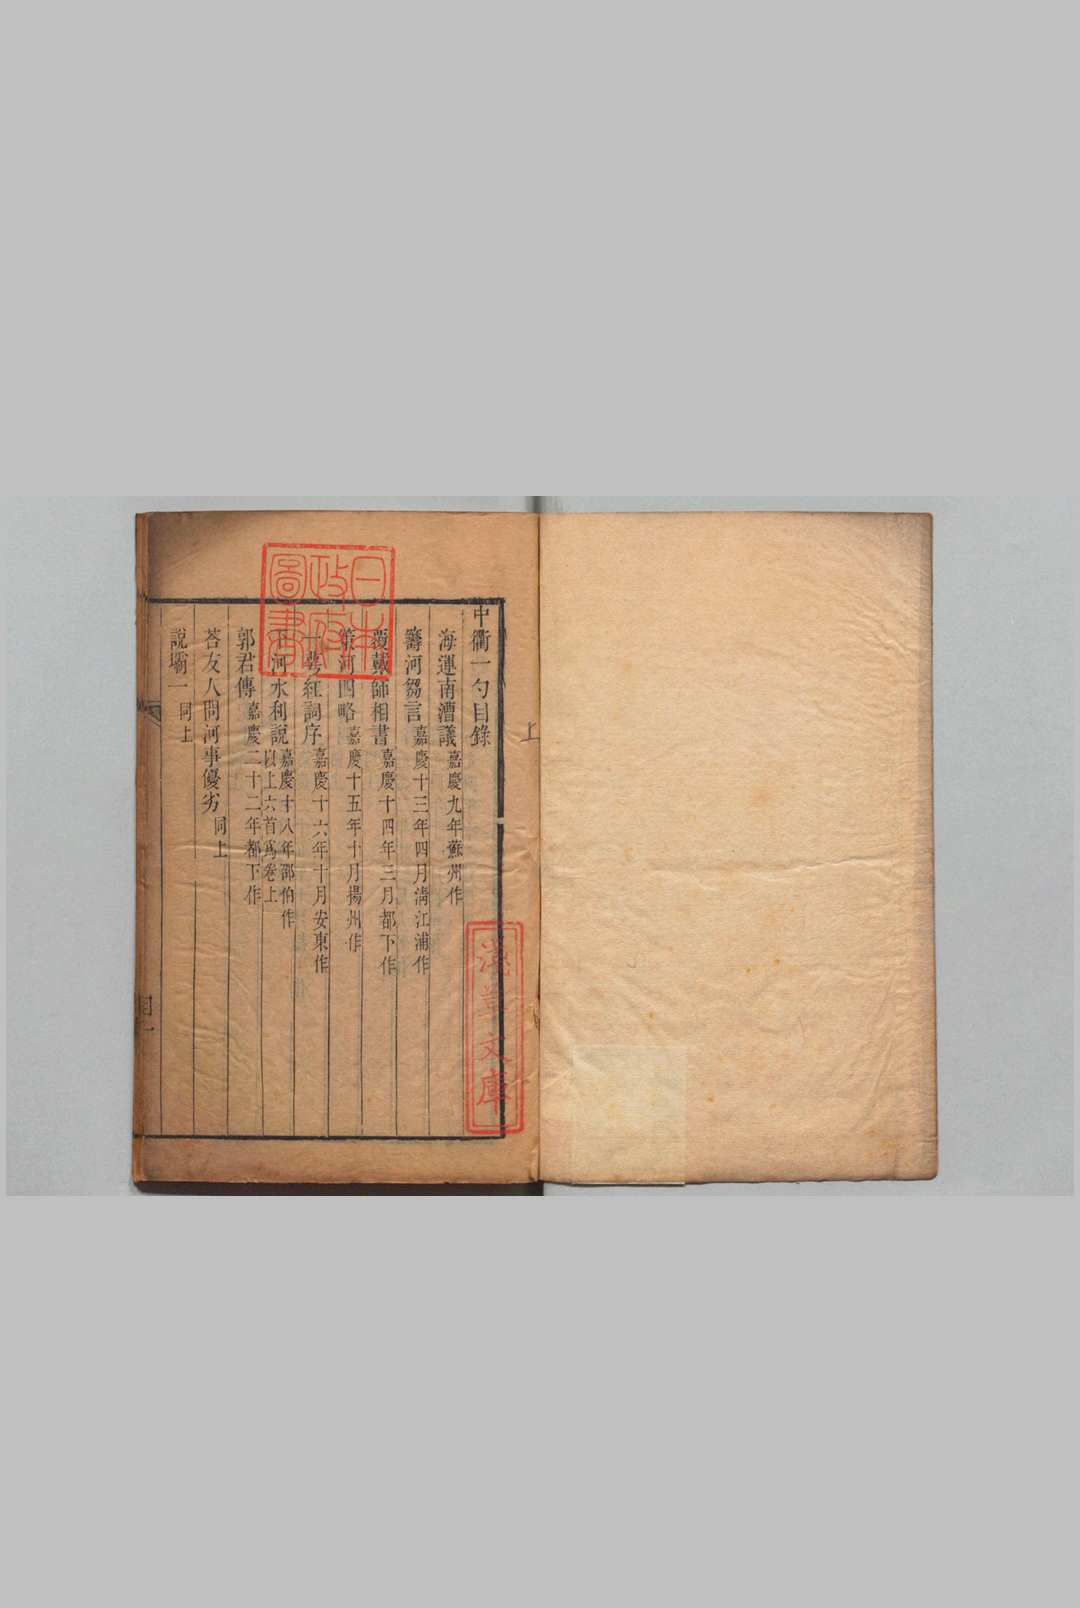 上
中衢一勺目錄
海運南漕議嘉慶九年蘇州作
籌河芻言嘉慶十三年四月淸江浦作
覆戴師相書嘉慶十四年三月都下作
策河四略嘉慶十五年十月揚州作
一萼紅詞序嘉慶十六年十月安東作
下河水利說嘉慶十八年邵伯作
以上六首爲卷上
郭君傳嘉慶二十二年都下作
荅友人問河事優劣同上
說壩一同上
日本
政府
圖書
文庫